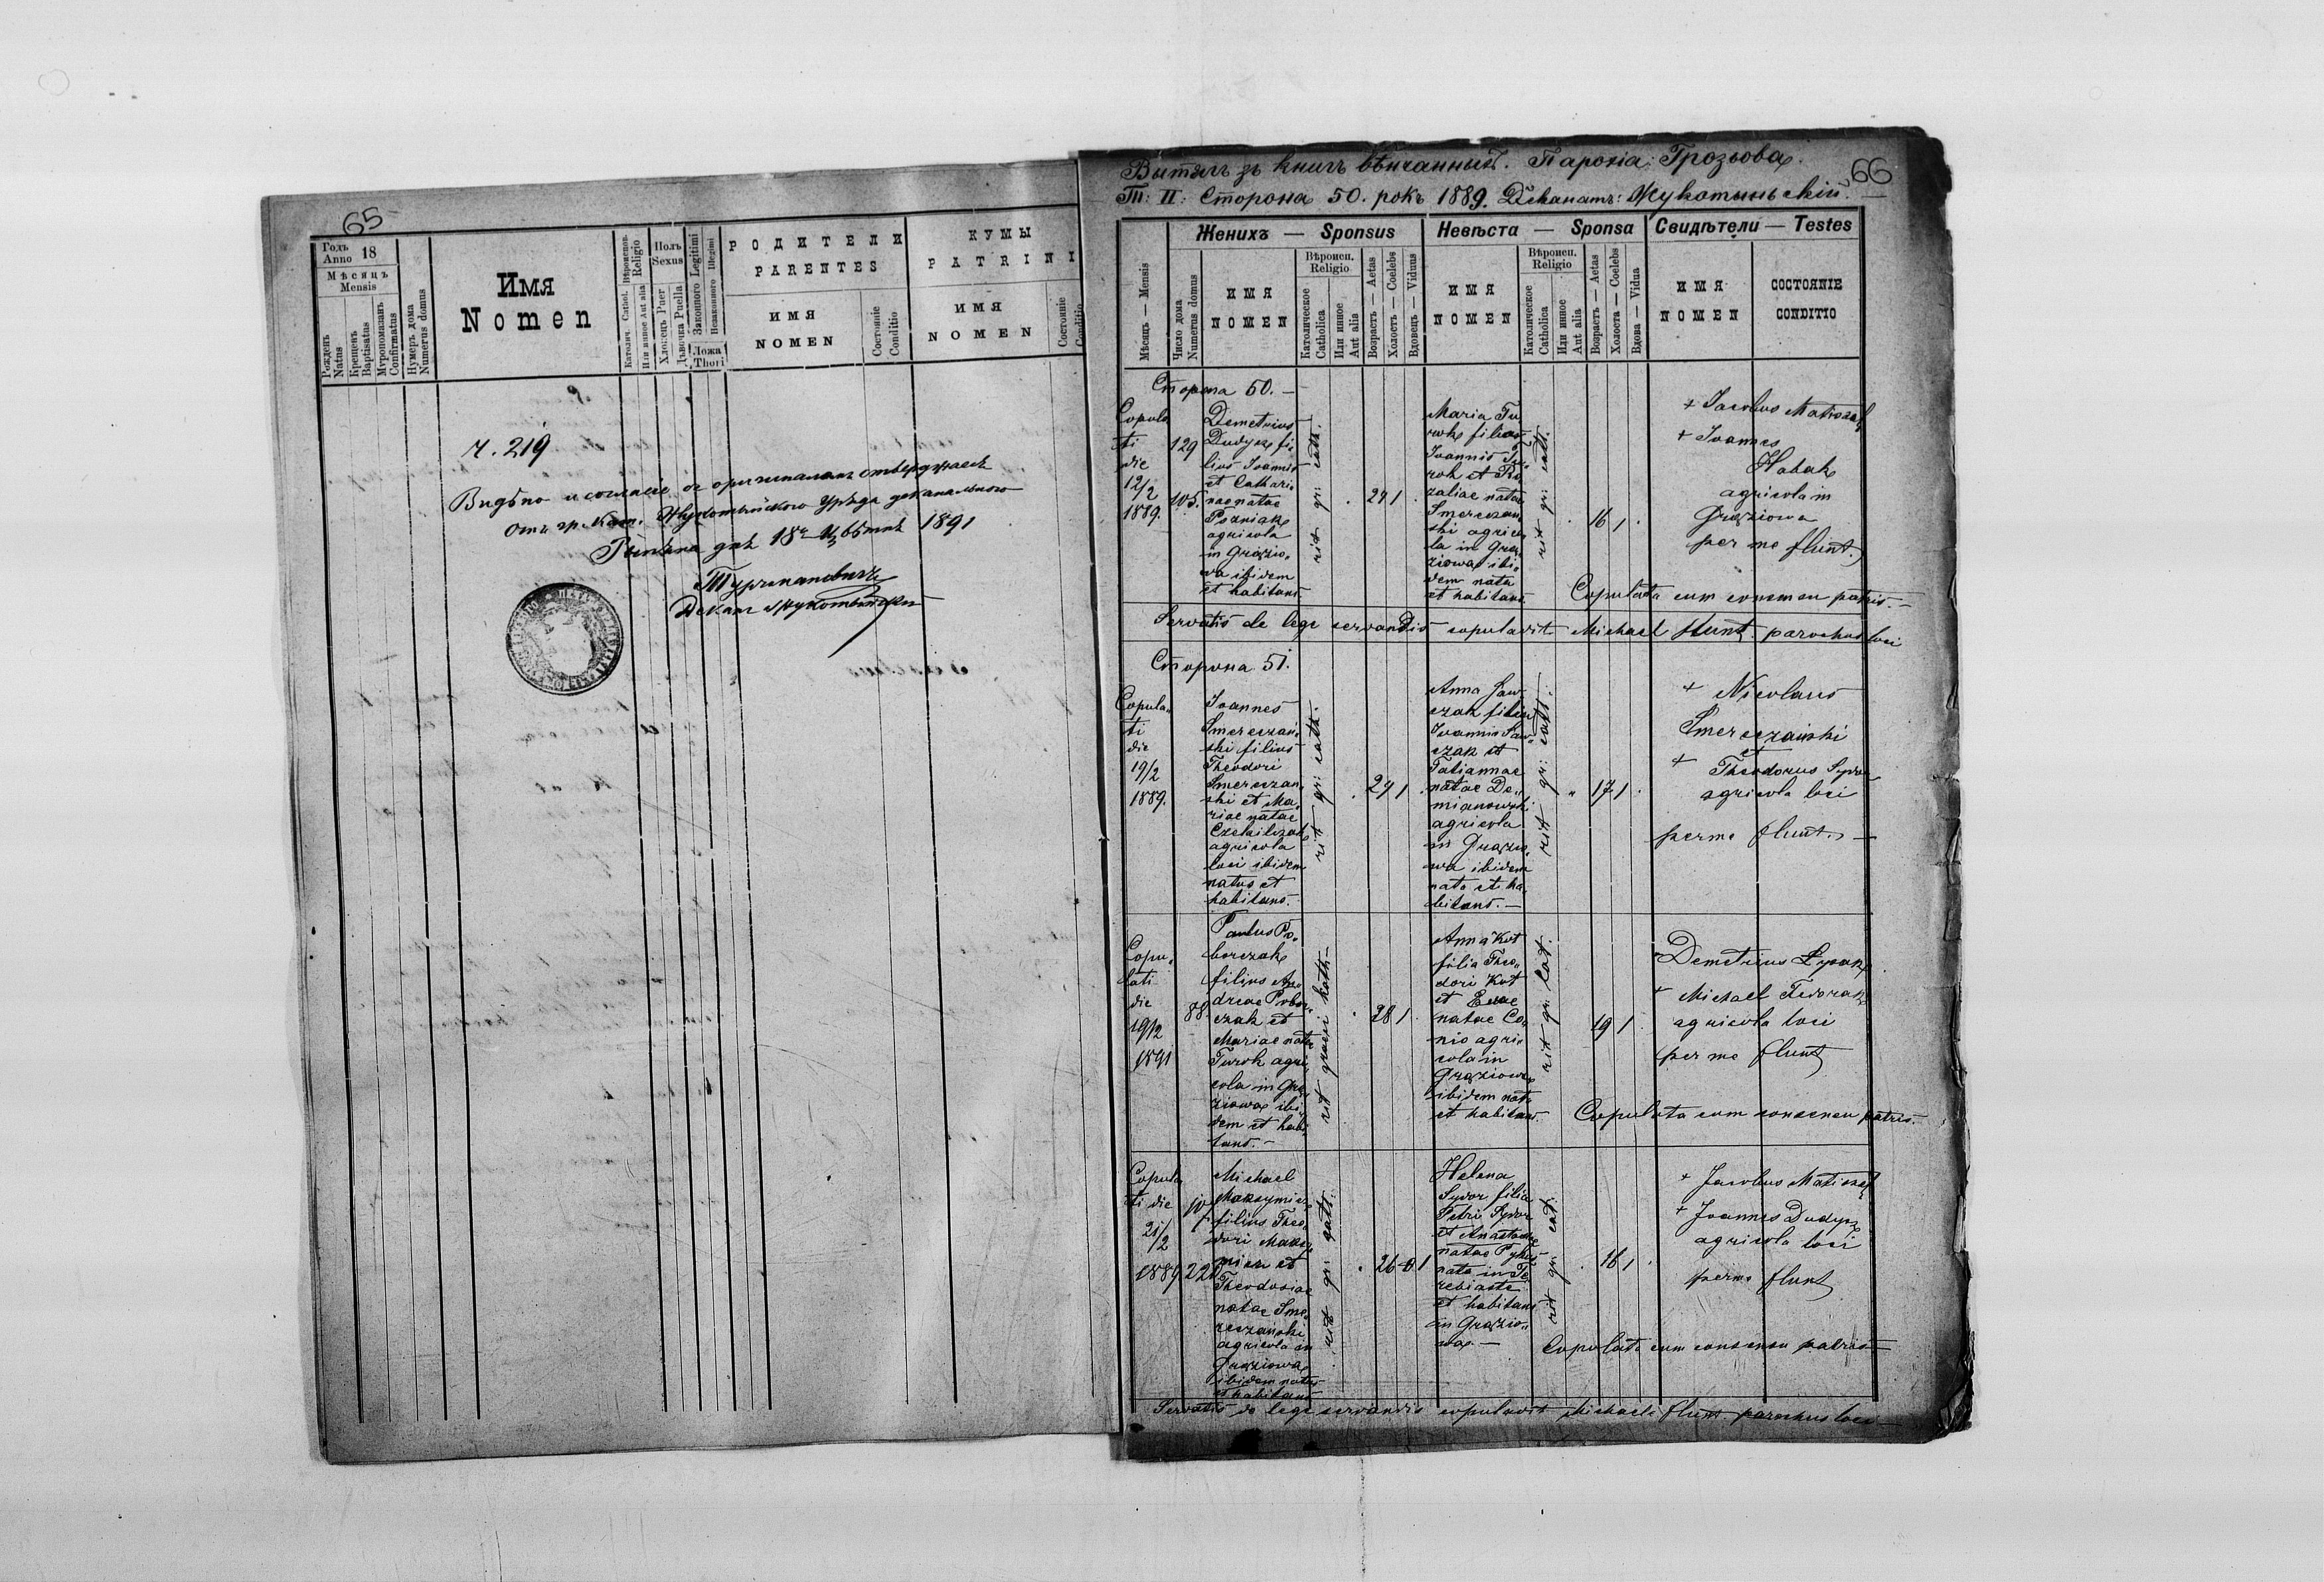 65
Годъ Anno 18
Мѣсяцъ Mensis
Рожденъ Natus
Крещенъ Baptisatus
Мѵропомазанъ Confirmatus
Нумеръ дома Numerus domus
Имя
Nomen
Вѣроиспов. Religio
Католич. Cathol.
Или инное Aut alia
Полъ Sexus
Хлопецъ Puer
Дѣвочка Puella
Законного Legitimi
Незаконного Illegitimi
Ложа Thori
РОДИТЕЛИ
PARENTES
ИМЯ
NOMEN
Состояніе Conditio
КУМЫ
PATRINI
ИМЯ
NOMEN
Состояніе Conditio
ч. 219
Видѣно и согласіе съ оригиналомъ стверджаесь
отъ гр. кат. Жукотыńского Уряда деканального
дня 18 1891
Деканъ Жукотыńскій
66
Вытягъ зъ книгъ вѣнчанныхъ. Парохія: Грозьова.
Т: II: Сторона 50. рокъ 1889. Деканатъ: Жукотыньскій.
Женихъ — Sponsus
Невѣста — Sponsa
Свидѣтели — Testes
Мѣсяцъ — Mensis
Число дома Numerus domus
ИМЯ
NOMEN
Вѣроисп. Religio
Католическое Catholica
Или инное Aut alia
Возрастъ — Aetas
Холостъ — Coelebs
Вдовецъ — Viduus
ИМЯ
NOMEN
Вѣроисп. Religio
Католическое Catholica
Или инное Aut alia
Возрастъ — Aetas
Холоста — Coelebs
Вдова — Vidua
ИМЯ
NOMEN
СОСТОЯНІЕ
CONDITIO
Сторона 50. —
Copula
ti
die
12/2
1889.
129
105.
Demetrius
Dudycz fi
lius Joannis
et Cathari
nae natae
Pozniak
agricola
in Grązio
wa ibidem
et habitans
rit gr: cath.
24 1
Maria Tu
rok filia
Joannis Tu
rok et Ro
zaliae natae
Smereczań
ski agrico
la in Grą
ziowa ibi
dem nata
et habitans.
rit gr: cath.
16 1
+ Jacobus Matiszak
+ Joannes
Habak
agricola in
Grąziowa
per me Hunt.
Copulata cum consensu patris. —
Servatis de lege servandis copulavit Michael Hunt parochus loci
Сторона 51.
Copula
ti
die
19/2
1889.
Joannes
Smereczań
ski filius
Theodori
Smereczań
ski et Ma
riae natae
agricola
loci ibidem
natus et
habitans. —
rit gr: cath.
24 1
Anna Saw
czak filia
Joannis Saw
czak et
Tatiannae
natae De
mianowski
agricola
in Grązio
wa ibidem
nata et ha
bitans. —
rit gr: cath.
17 1
+ Nicolaus
Smereczański
et
+ Theodorus Sydor
agricola loci
per me Hunt. —
Copu
lati
die
19/2
1891
88.
Paulus Po
borczak
filius An
dreae Pobor
czak et
Mariae natae
Turok agri
cola in Grą
ziowa ibi
dem et habi
tans. —
rit graeci kath
28 1
Anna Kot
filia Theo
dori Kot
et Evae
natae Co
nio agri
cola in
Grąziowa
ibidem nata
et habitans.
rit gr: cat.
19 1
+ Demetrius Łysak
+ Michael Fedorak
agricola loci
per me Hunt
Copulata cum consensu patris.
Copula
ti die
21/2
1889
Michael
Maksymicz
filius Theo
dori Maksy
micz et
Theodosiae
natae Sme
reczański
agricola in
Grąziowa
ibidem natus
et habitans
rit gr: cath.
26 1
Helena
Sydor filia
Petri Sydor
et Anastasiae
nata in Te
rebiasta
et habitans
in Grązio
wa —
rit gr: cat.
16 1
+ Jacobus Matiszak
+ Joannes Dudycz
agricola loci
per me Hunt
Copulata cum consensu patris —
Servatis de lege servandis copulavit Michael Hunt parochus loci —